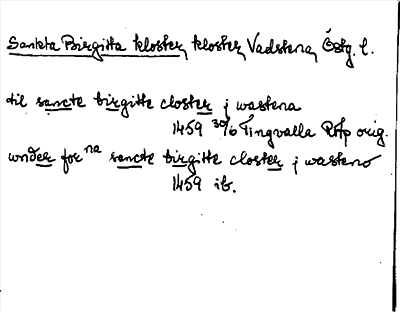 Sankta Birgitta kloster, kloster, Vadstena, Östg. l.
til sancte birgitte closter j wastena
1459 30/6 Tingvalla RAp orig.
wnder for na sancte birgitte closter j wasteno
1459 ib.